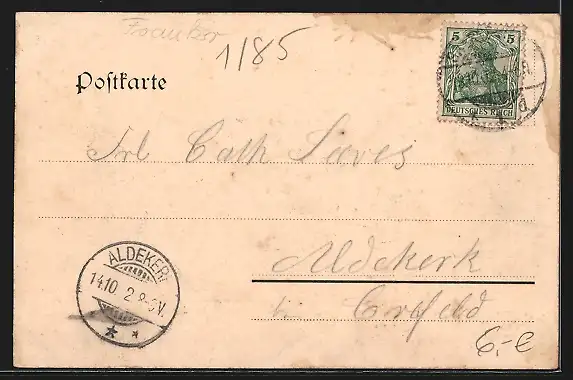 1/85
Postkarte
5
DEUTSCHES REICH
Frl Cath
Aldekerk
b. Crefeld
ALDEKERK
14.10 2 8-9V.
6,- €